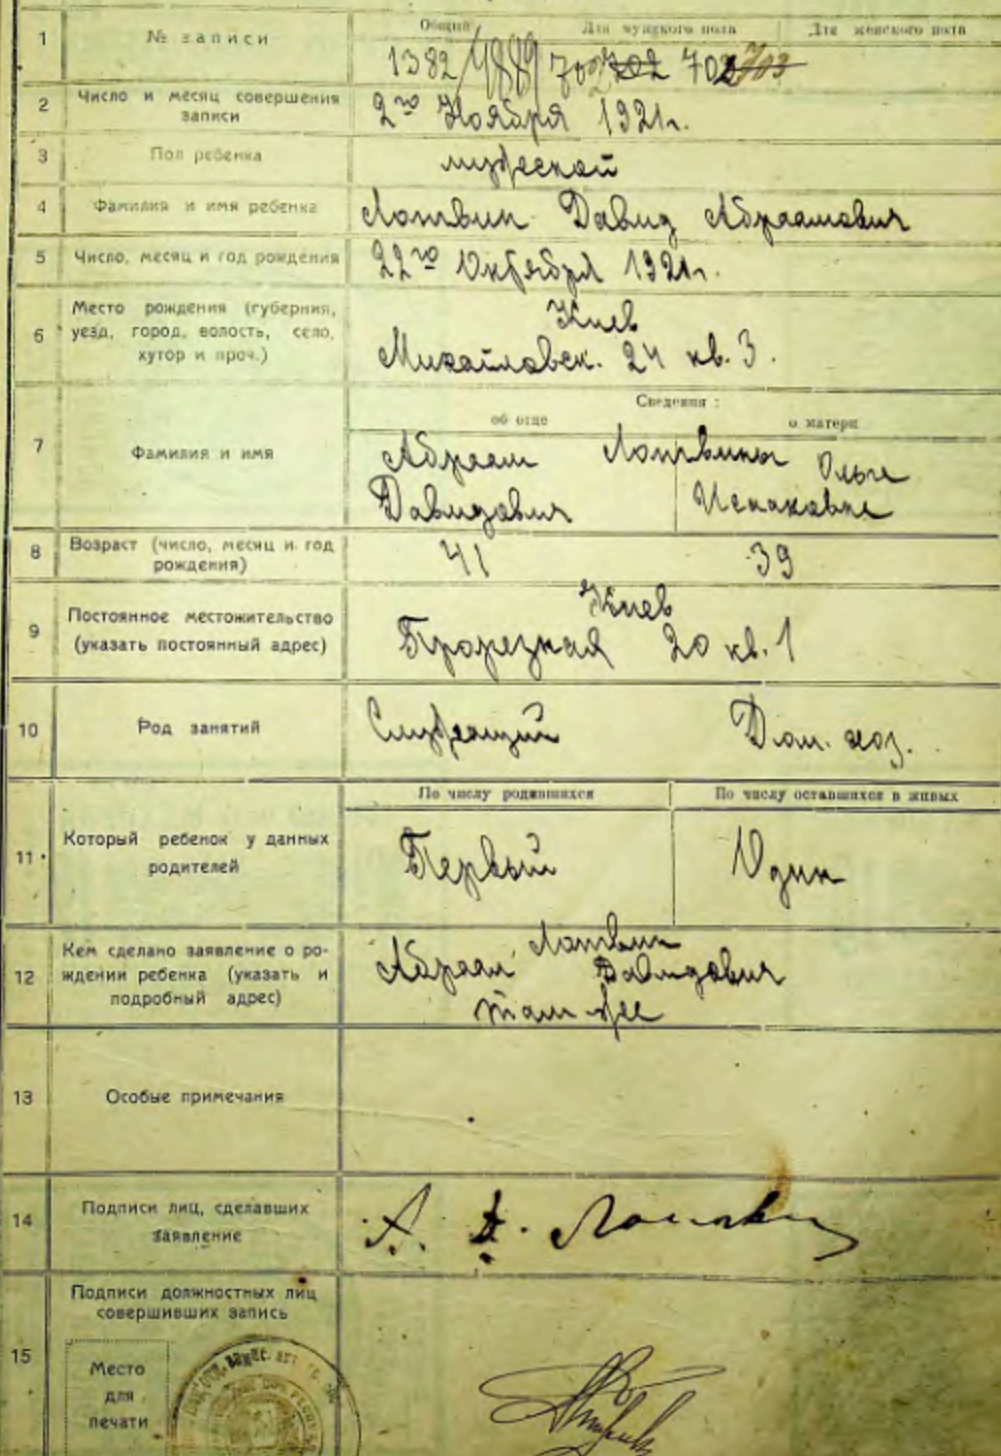 1
№ записи
Общий
Для мужского пола
Для женского пола
1382 702 703
2
Число и месяц совершения
записи
2го Ноября 1921г.
3
Пол ребенка
мужеской
4
Фамилия и имя ребенка
Лотвин Давид Абраамович
5
Число, месяц и год рождения
22го Октября 1921г.
6
Место рождения (губерния,
уезд, город, волость, село,
хутор и проч.)
Киев
Михайловск. 24 кв. 3.
7
Фамилия и имя
Сведения:
об отце
о матери
Абраам Лотвины Ольга
Давидович Исааковна
8
Возраст (число, месяц и год
рождения)
41 39
9
Постоянное местожительство
(указать постоянный адрес)
Киев
Прорезная 20 кв. 1
10
Род занятий
Служащий Дом. хоз.
11
Который ребенок у данных
родителей
По числу родившихся
По числу оставшихся в живых
Первый
Один
12
Кем сделано заявление о ро-
ждении ребенка (указать и
подробный адрес)
Лотвин
Абраам Давидович
там же
13
Особые примечания
14
Подписи лиц, сделавших
заявление
А. Д. Лотвин
15
Подписи должностных лиц
совершивших запись
Место
для
печати